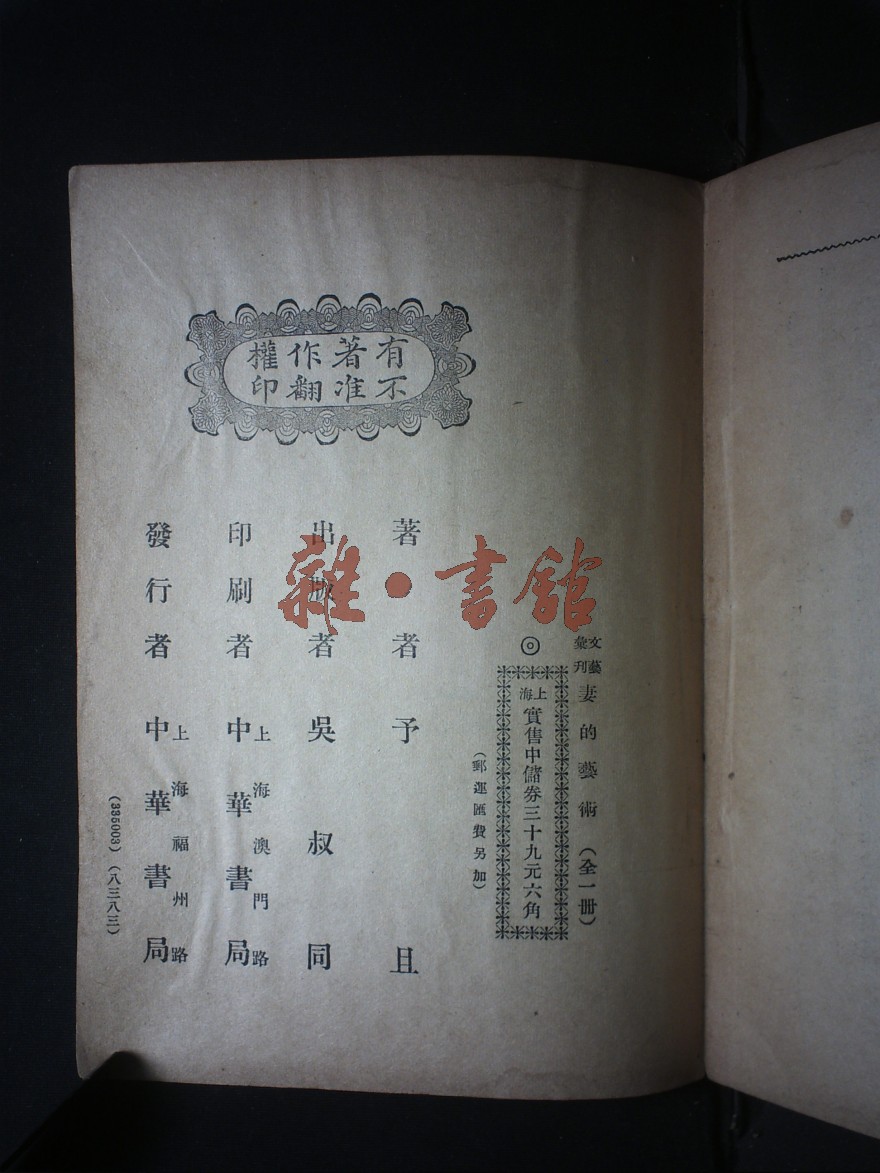 有著作權
不准翻印
文藝彙刊 妻的藝術（全一冊）
◎
上海實售中儲券三十九元六角
（郵運匯費另加）
著者 予且
出版者 吳叔同
印刷者 上海澳門路 中華書局
發行者 上海福州路 中華書局
（335003）（八三八三）
雜·書館